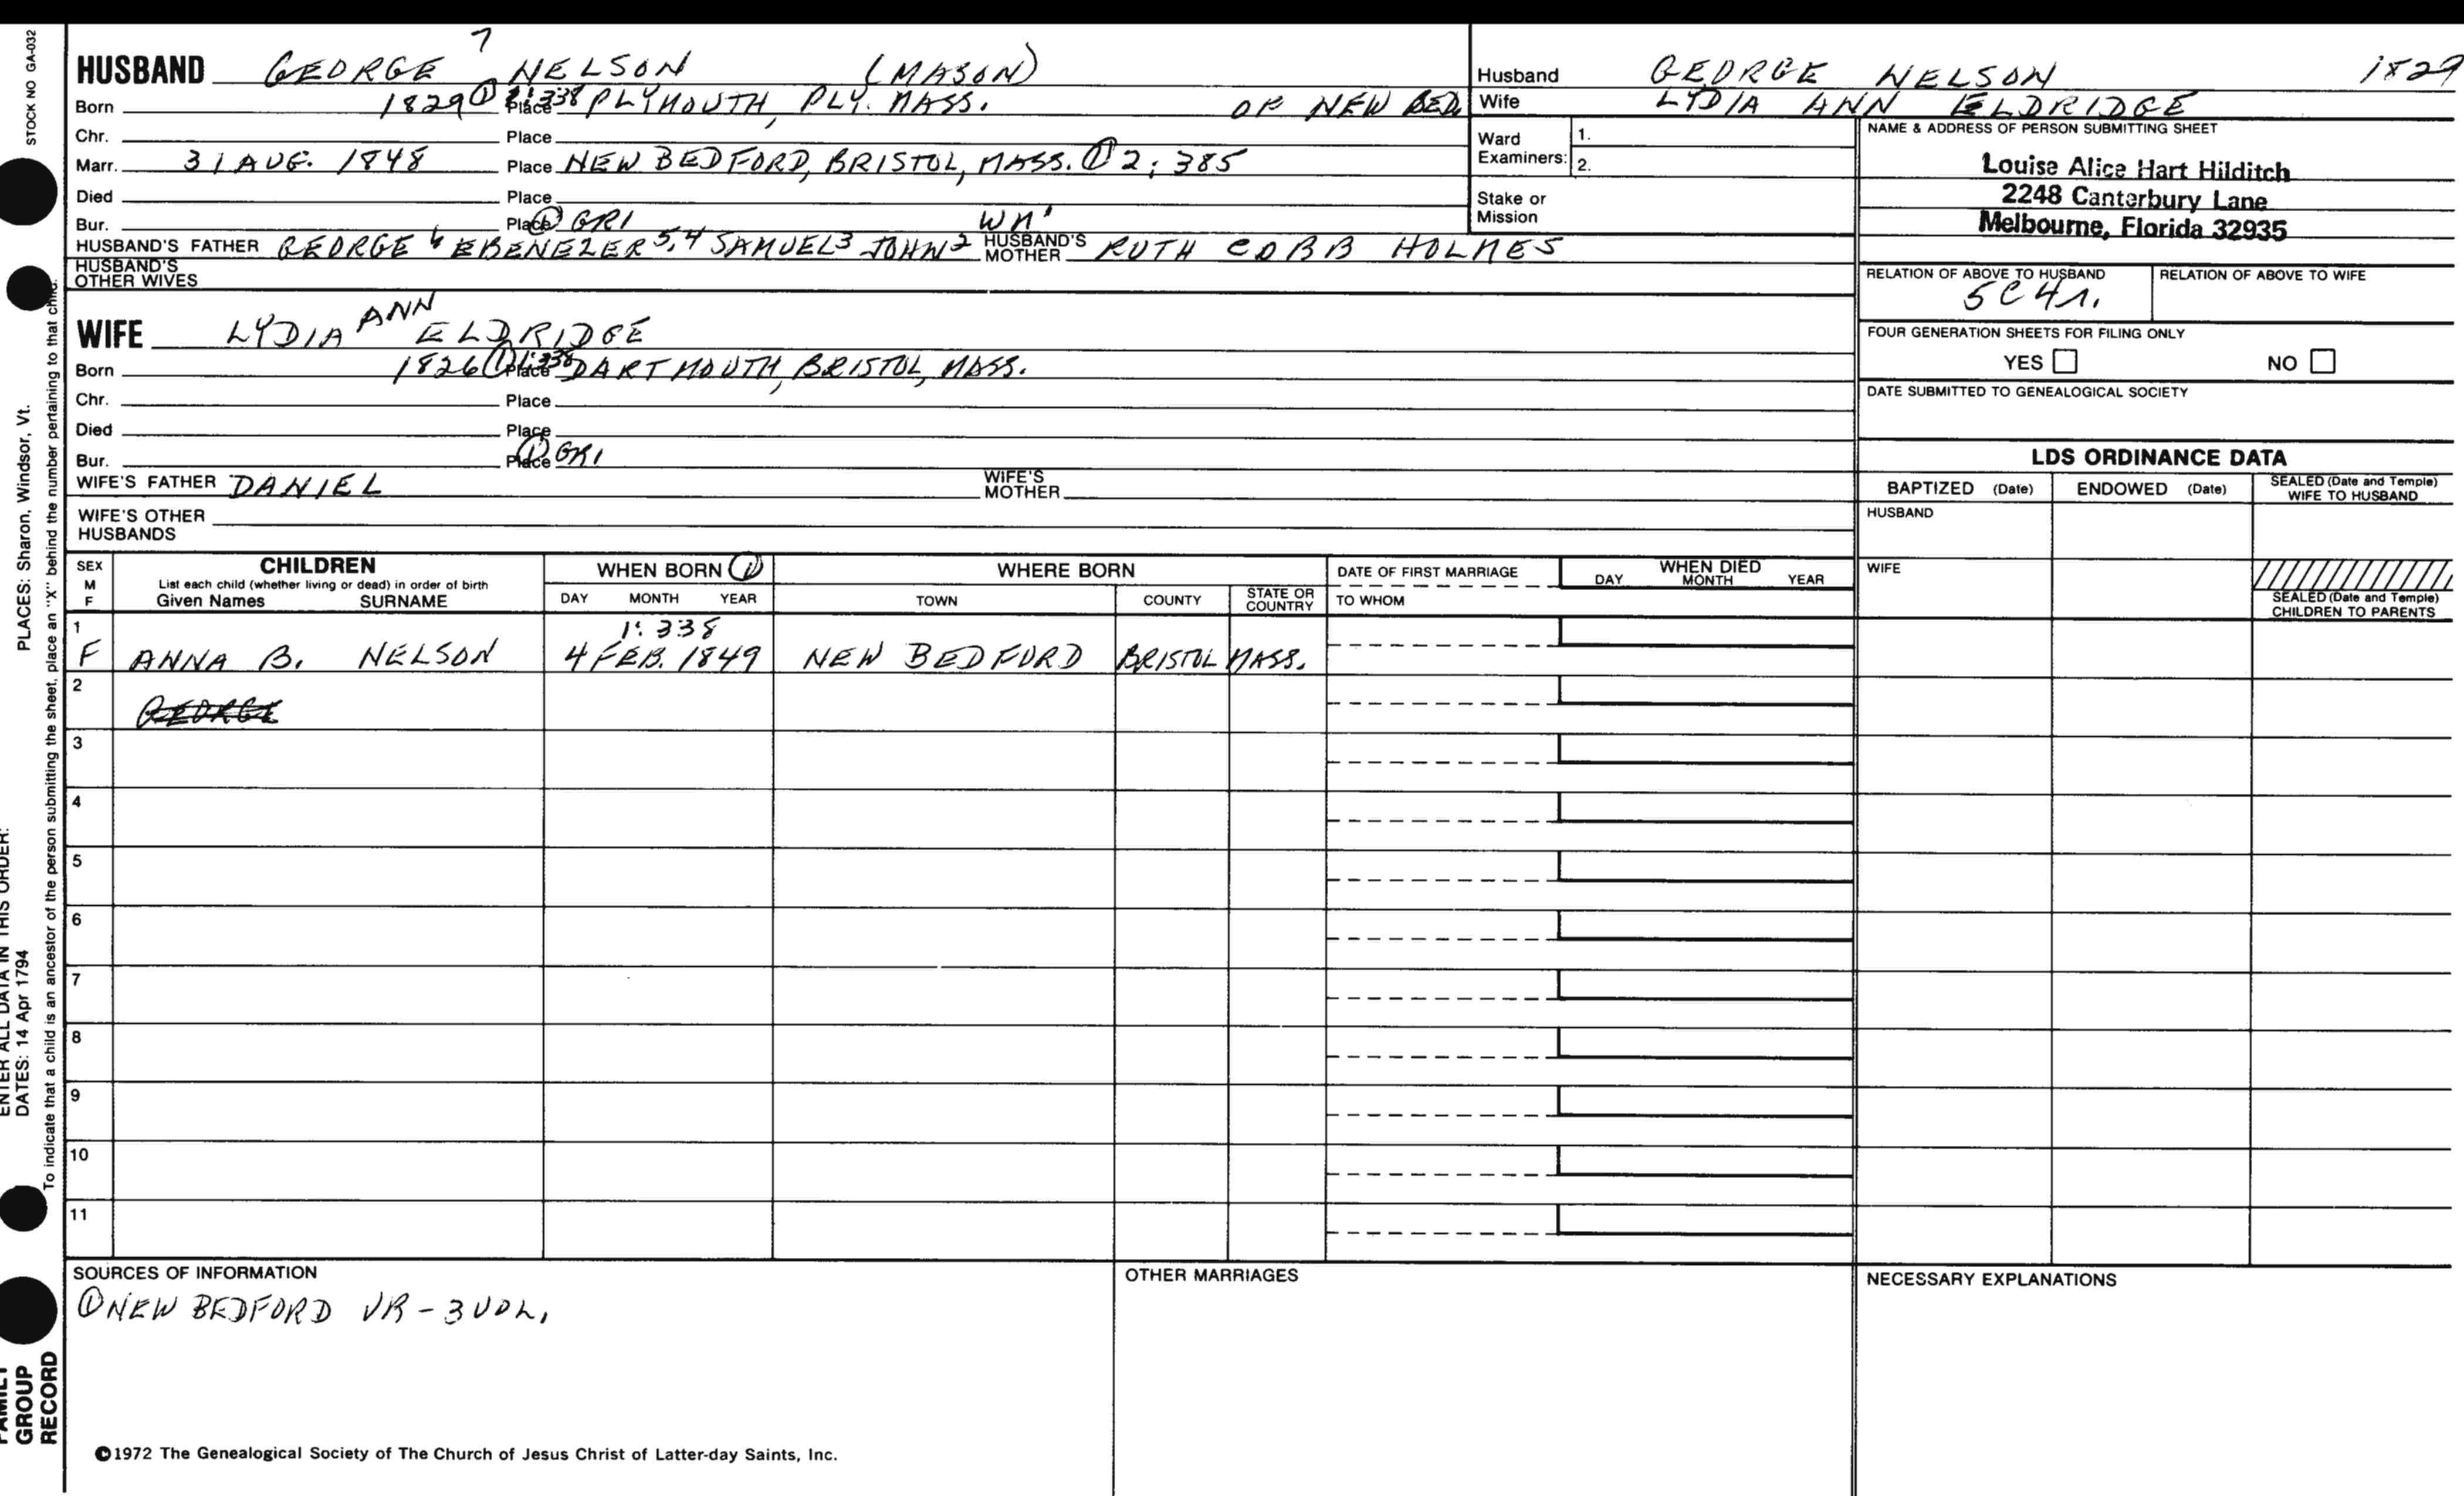 STOCK NO GA-032
PLACES: Sharon, Windsor, Vt.
ENTER ALL DATA IN THIS ORDER:
DATES: 14 Apr 1794
To indicate that a child is an ancestor of the person submitting the sheet, place an "X" behind the number pertaining to that child.
FAMILY GROUP RECORD
HUSBAND GEORGE 7 NELSON (MASON)
Born 1829 ① 1:338 Place PLYMOUTH, PLY. MASS. OF NEW BED.
Chr. Place
Marr. 31 AUG. 1848 Place NEW BEDFORD, BRISTOL, MASS. ① 2:385
Died Place
Bur. Place ① GRI WM 1
HUSBAND'S FATHER GEORGE 6 EBENEZER 5,4 SAMUEL 3 JOHN 2 HUSBAND'S MOTHER RUTH COBB HOLMES
HUSBAND'S OTHER WIVES
WIFE LYDIA ANN ELDRIDGE
Born 1826 ① 1:338 Place DARTMOUTH, BRISTOL, MASS.
Chr. Place
Died Place
Bur. Place ① GRI
WIFE'S FATHER DANIEL WIFE'S MOTHER
WIFE'S OTHER HUSBANDS
Husband GEORGE NELSON 1829
Wife LYDIA ANN ELDRIDGE
Ward Examiners: 1.
2.
Stake or Mission
NAME & ADDRESS OF PERSON SUBMITTING SHEET
Louise Alice Hart Hilditch
2248 Canterbury Lane
Melbourne, Florida 32935
RELATION OF ABOVE TO HUSBAND RELATION OF ABOVE TO WIFE
5C4r.
FOUR GENERATION SHEETS FOR FILING ONLY
YES NO
DATE SUBMITTED TO GENEALOGICAL SOCIETY
LDS ORDINANCE DATA
BAPTIZED (Date) ENDOWED (Date) SEALED (Date and Temple) WIFE TO HUSBAND
HUSBAND
WIFE
SEALED (Date and Temple) CHILDREN TO PARENTS
SEX M F CHILDREN WHEN BORN ① WHERE BORN DATE OF FIRST MARRIAGE WHEN DIED
List each child (whether living or dead) in order of birth
Given Names SURNAME DAY MONTH YEAR TOWN COUNTY STATE OR COUNTRY TO WHOM DAY MONTH YEAR
1 1:338
F ANNA B. NELSON 4 FEB. 1849 NEW BEDFORD BRISTOL MASS.
2
GEORGE
3
4
5
6
7
8
9
10
11
SOURCES OF INFORMATION OTHER MARRIAGES NECESSARY EXPLANATIONS
① NEW BEDFORD VR - 3 VOL.
©1972 The Genealogical Society of The Church of Jesus Christ of Latter-day Saints, Inc.